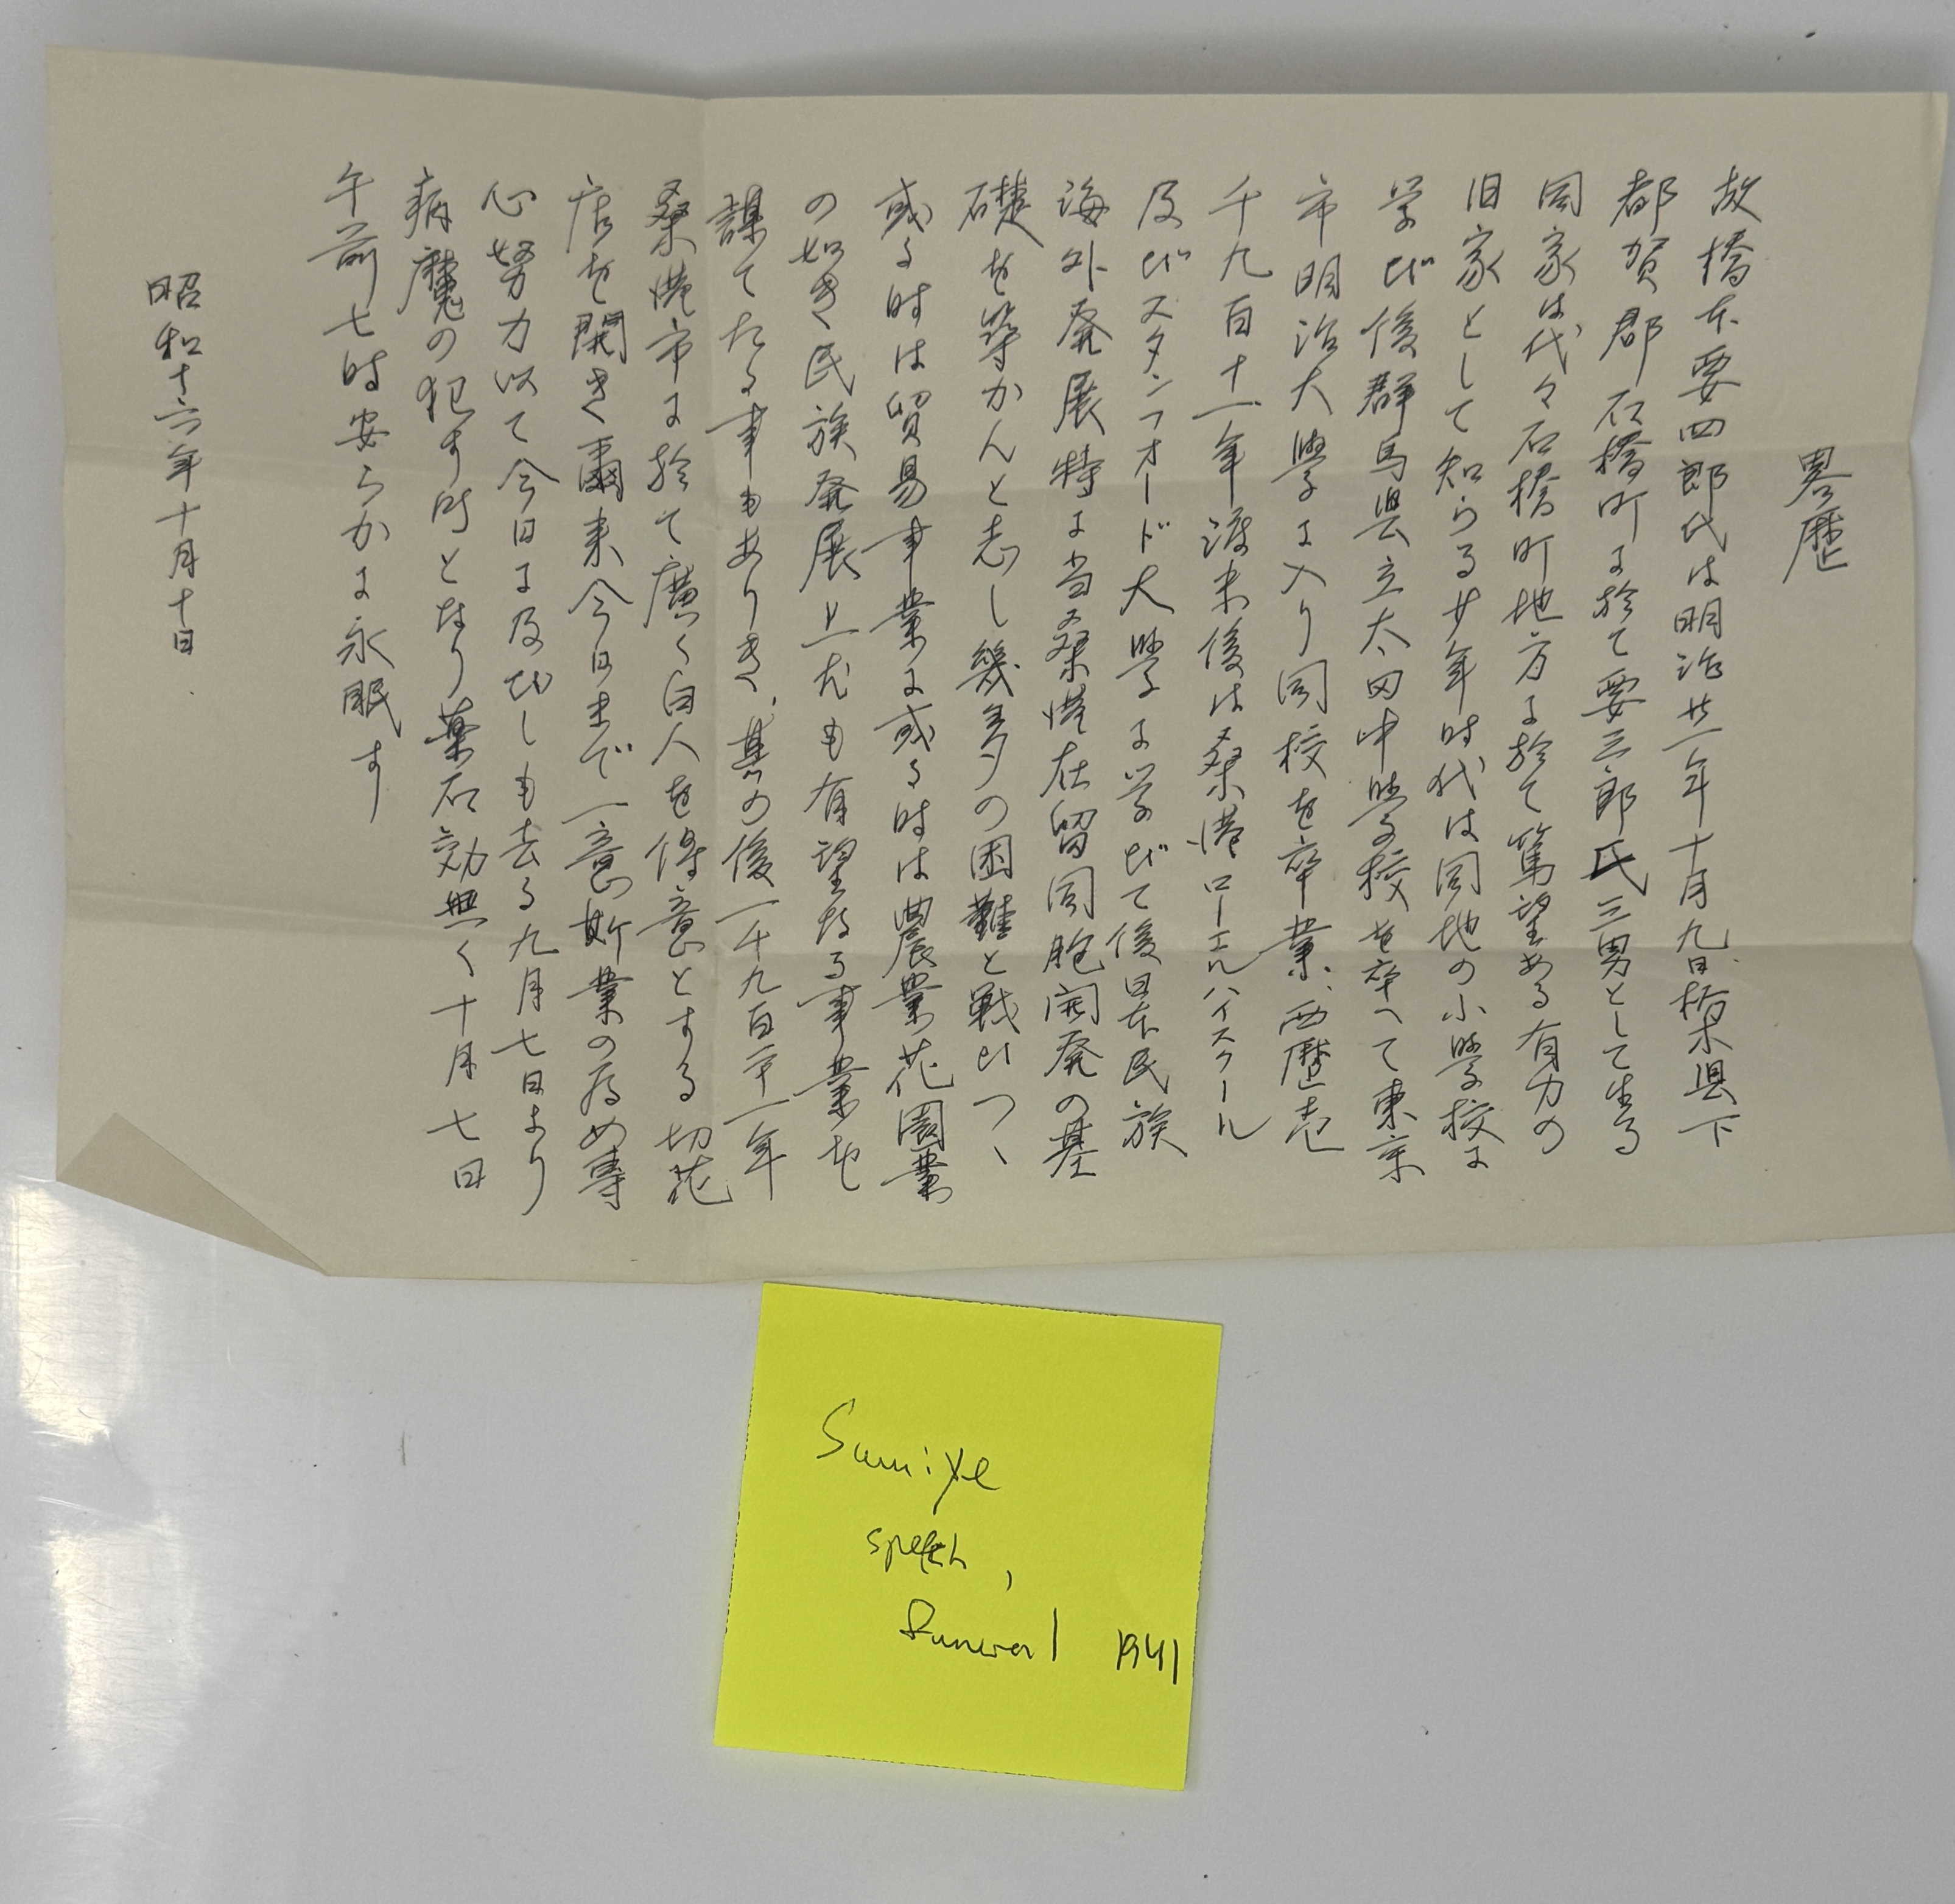 畧歴
故橋本要四郎氏は明治廿一年十月九日栃木県下
都賀郡石橋町に於て要三郎氏三男として生る
同家は代々石橋町地方に於て篤望ある有力の
旧家として知らる少年時代は同地の小學校に
学び後群馬県立太田中學校を卒へて東京
市明治大學に入り同校を卒業、西歴壱
千九百十一年渡米後は桑港ローエルハイスクール
及びスタンフオード大學に学びて後日本民族
海外発展特に当桑港在留同胞開発の基
礎を築かんと志し幾多の困難と戦ひつゝ
或る時は貿易事業に或る時は農業花園業
の如き民族発展上尤も有望なる事業を
謀てたる事もありき、其の後一千九百二十一年
桑港市に於て廣く白人を得意とする切花
店を開き爾来今日まで一意斯業の為め専
心努力以て今日に及びしも去る九月七日より
病魔の犯す所となり薬石効無く十月七日
午前七時安らかに永眠す
昭和十六年十月十日
Sumiye
speech,
Funeral 1941